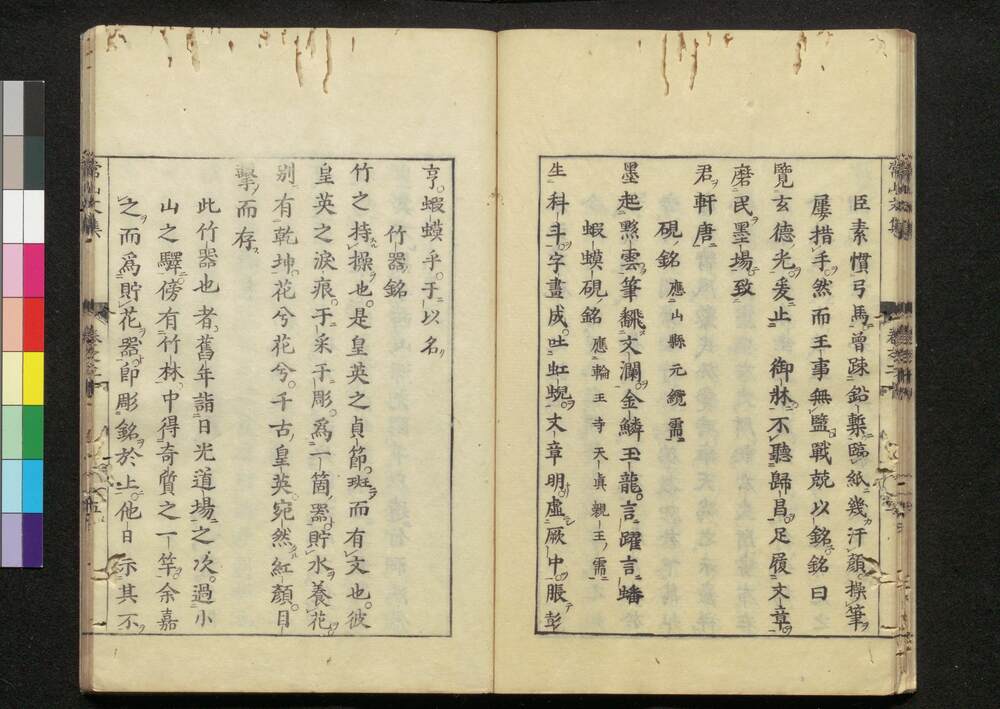 臣素慣弓馬曾疎鉛槧臨紙幾汗顔操筆
屢措手然而王事無盬戰兢以銘銘曰
覽玄德光爰止 御牀不聽歸昌足履文章
磨民墨場致
君軒唐
硯銘 應山縣元纜需
墨起黟雲筆飜文瀾金鱗玉龍言躍言蟠
蝦蟆硯銘 應輪王寺天眞親王需
生科斗字畫成吐虹蜺文章明虛厥中脹彭
亨蝦蟆乎于以名
竹器銘
竹之持操也是皇英之貞節斑而有文也彼
皇英之淚痕于采于彫爲一箇器貯水養花
別有乾坤花兮花兮千古皇英宛然紅顏目
擊而存
此竹器也者舊年詣日光道場之次過小
山之驛傍有竹林中得奇質之一竿余嘉
之而爲貯花器卽彫銘於上他日示其不
常山文集
常山文集
卷之二十